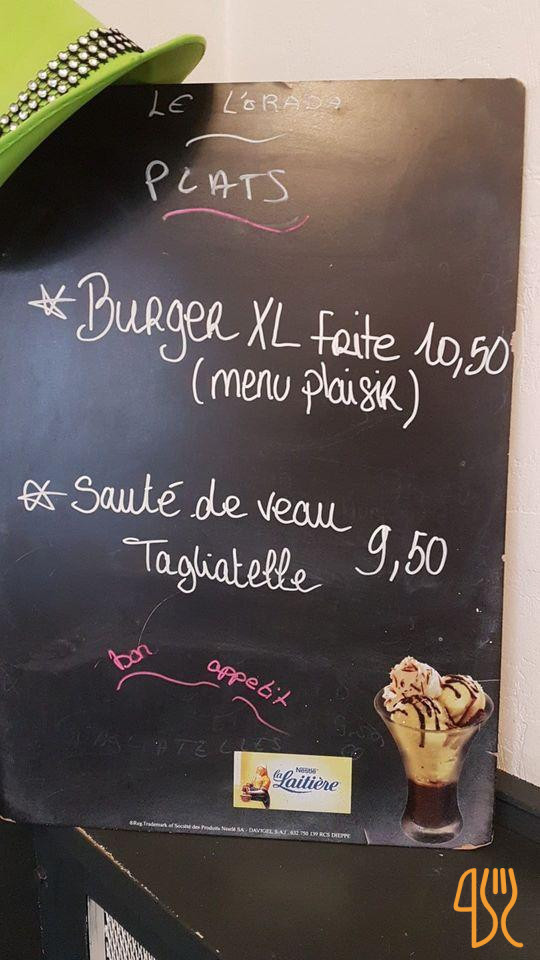 LE L'ORADA
PLATS
Burger XL frite 10,50
(menu plaisir)
Sauté de veau
Tagliatelle 9,50
bon
appetit
Nestlé
la Laitière
®Reg.Trademark of Société des Produits Nestlé SA - DAVIGEL S.A.S. 032 750 139 RCS DIEPPE